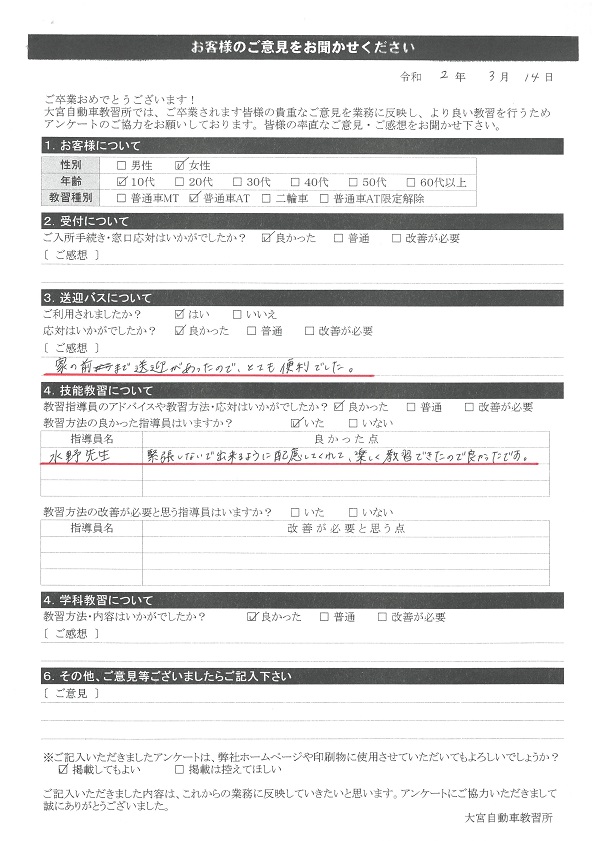 お客様のご意見をお聞かせください
令和 2 年 3 月 14 日
ご卒業おめでとうございます！
大宮自動車教習所では、ご卒業されます皆様の貴重なご意見を業務に反映し、より良い教習を行うため
アンケートのご協力をお願いしております。皆様の率直なご意見・ご感想をお聞かせ下さい。
1. お客様について
性別 □ 男性 ☑ 女性
年齢 ☑ 10代 □ 20代 □ 30代 □ 40代 □ 50代 □ 60代以上
教習種別 □ 普通車MT ☑ 普通車AT □ 二輪車 □ 普通車AT限定解除
2. 受付について
ご入所手続き・窓口応対はいかがでしたか？ ☑ 良かった □ 普通 □ 改善が必要
[ ご感想 ]
3. 送迎バスについて
ご利用されましたか？ ☑ はい □ いいえ
応対はいかがでしたか？ ☑ 良かった □ 普通 □ 改善が必要
[ ご感想 ]
家の前まで送迎があったので、とても便利でした。
4. 技能教習について
教習指導員のアドバイスや教習方法・応対はいかがでしたか？ ☑ 良かった □ 普通 □ 改善が必要
教習方法の良かった指導員はいますか？ ☑ いた □ いない
指導員名 良かった点
水野先生 緊張しないで出来るように配慮してくれて、楽しく教習できたので良かったです。
教習方法の改善が必要と思う指導員はいますか？ □ いた □ いない
指導員名 改善が必要と思う点
4. 学科教習について
教習方法・内容はいかがでしたか？ ☑ 良かった □ 普通 □ 改善が必要
[ ご感想 ]
6. その他、ご意見等ございましたらご記入下さい
[ ご意見 ]
※ご記入いただきましたアンケートは、弊社ホームページや印刷物に使用させていただいてもよろしいでしょうか？
☑ 掲載してもよい □ 掲載は控えてほしい
ご記入いただきました内容は、これからの業務に反映していきたいと思います。アンケートにご協力いただきまして
誠にありがとうございました。
大宮自動車教習所